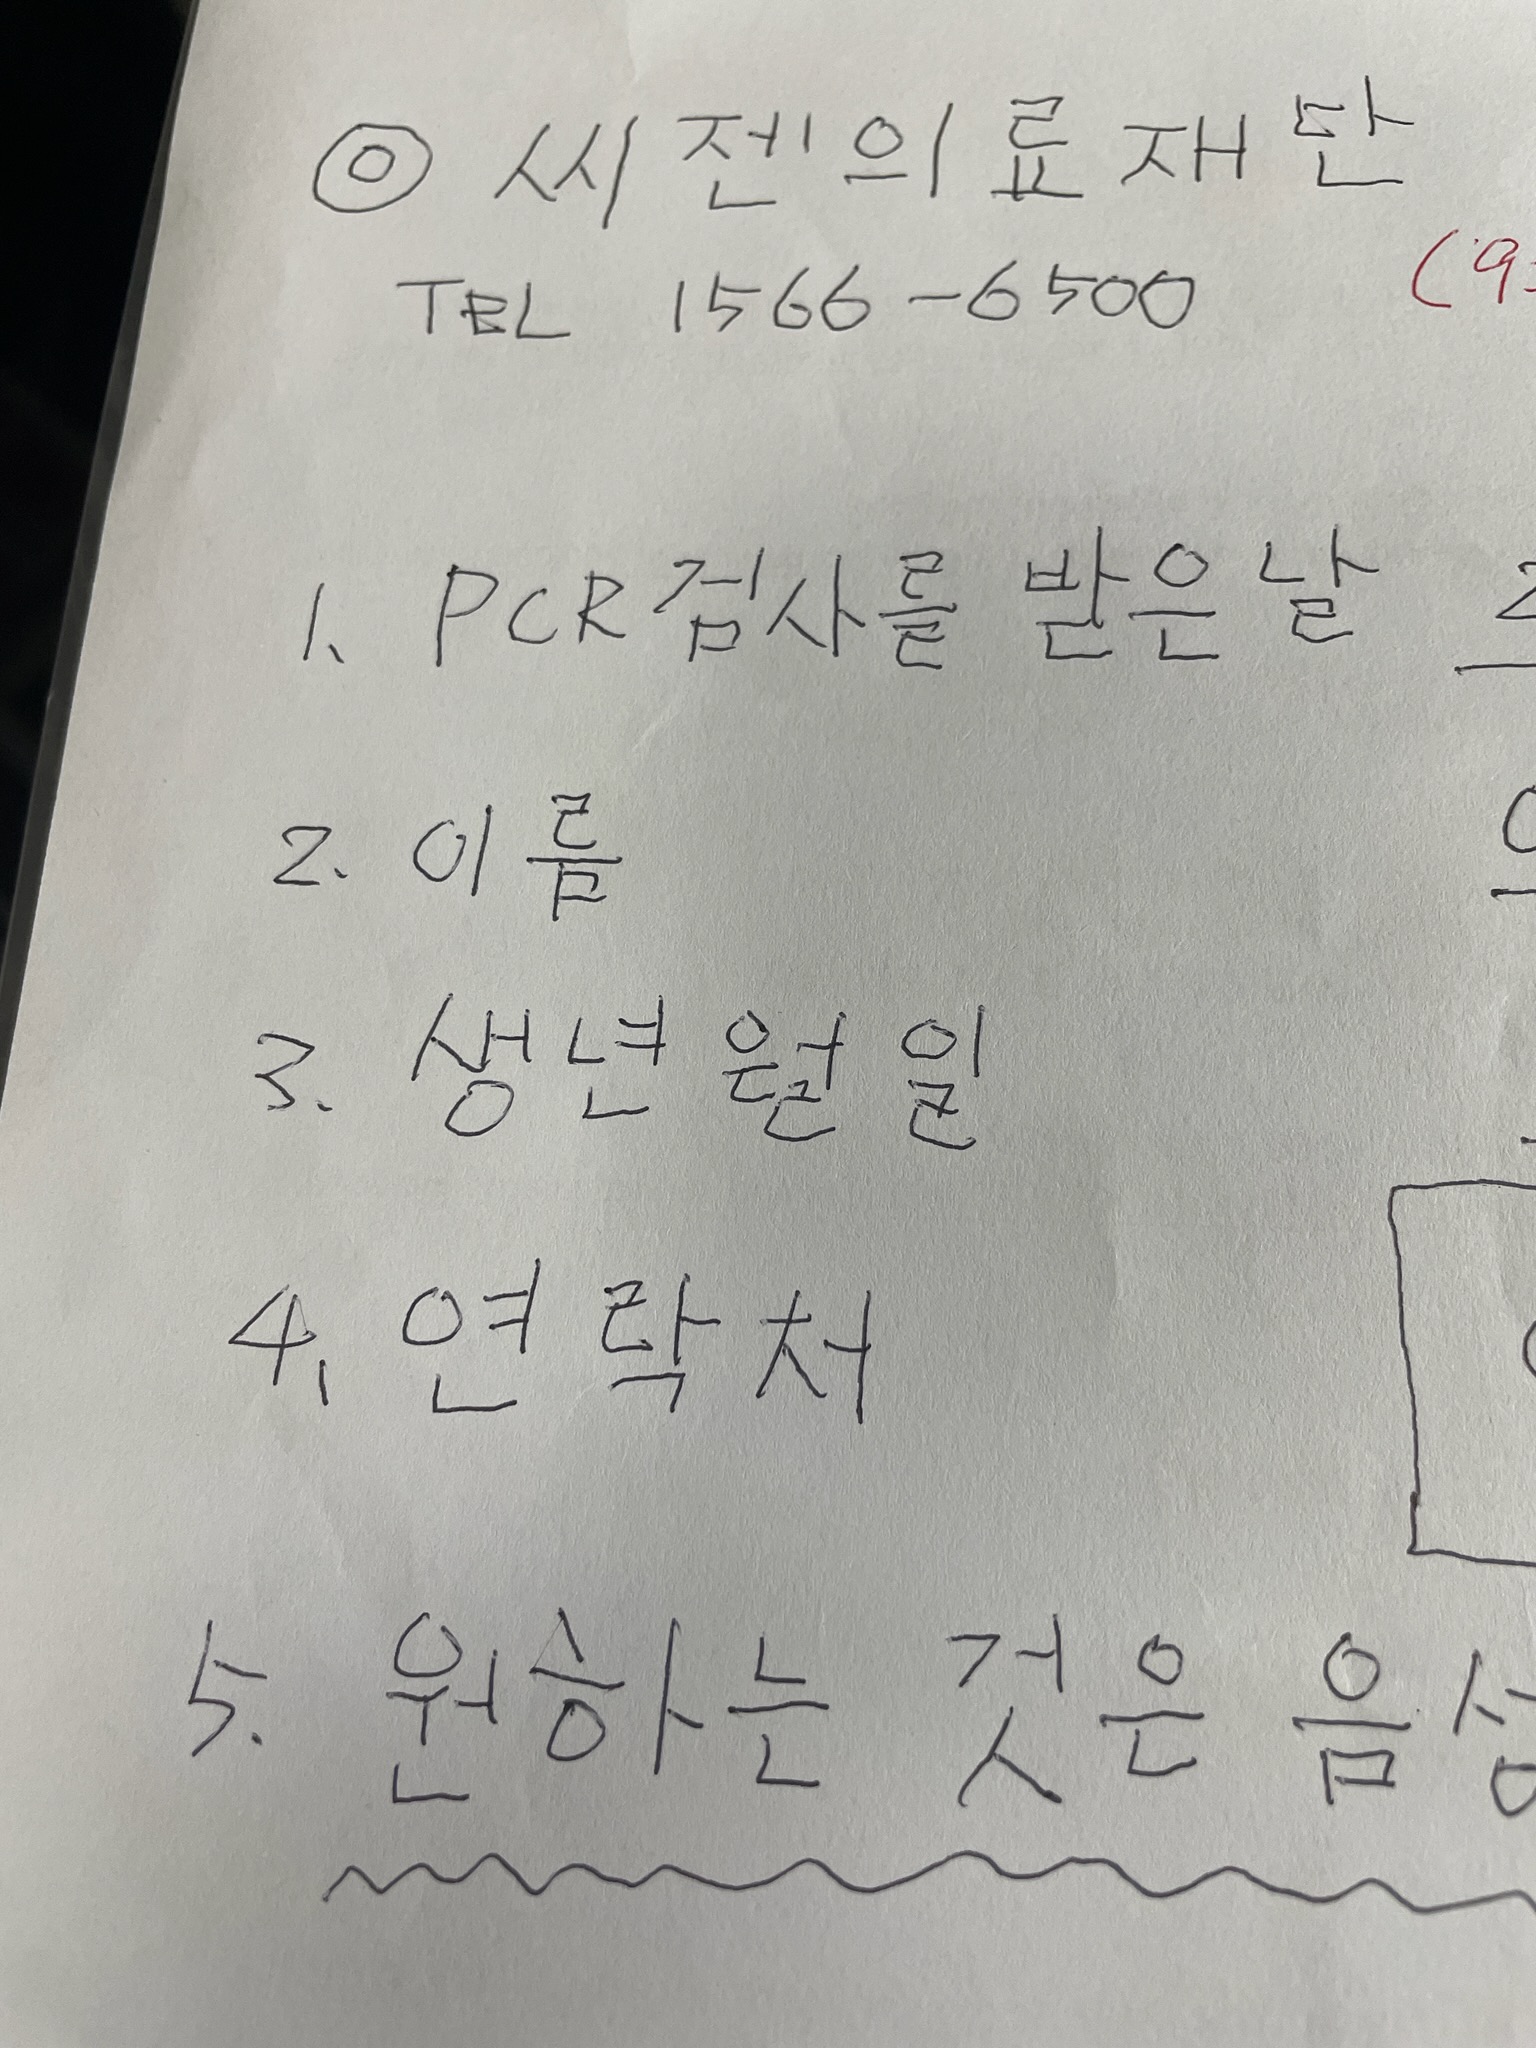 ◎ 씨젠의료재단
TEL 1566-6500 (9
1. PCR검사를 받은 날 2
2. 이름
3. 생년월일
4. 연락처
5. 원하는 것은 음성